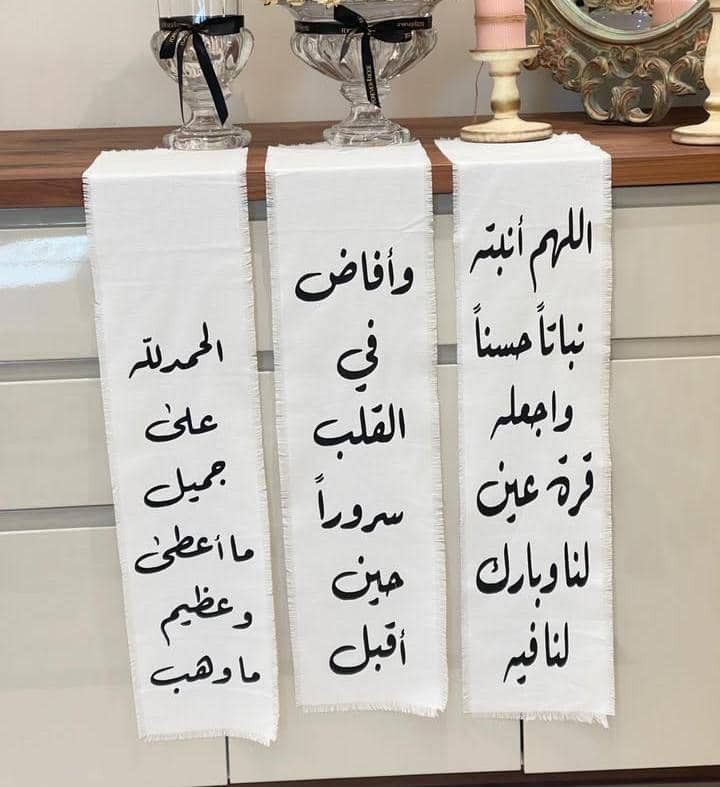 اللهم أنبته
نباتاً حسناً
واجعله
قرة عين
لنا وبارك
لنا فيه
وأفاض
في
القلب
سروراً
حين
أقبل
الحمدلله
على
جميل
ما أعطى
وعظيم
ما وهب